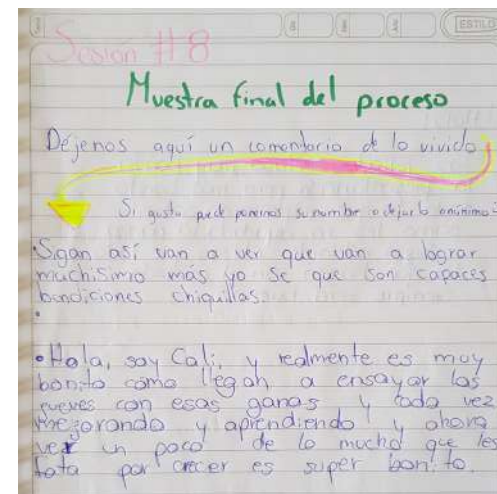 ESTILO
Sesión #8
Muestra final del proceso
Déjenos aquí un comentario de lo vivido
Si gusta puede ponernos su nombre o dejarlo anónimo
Sigan así van a ver que van a lograr
muchisimo mas yo se que son capaces
bendiciones chiquillas.
•Hola, soy Cali, y realmente es muy
bonito cómo llegan a ensayar los
jueves con esas ganas y cada vez
mejorando y aprendiendo y ahora
ver un poco de lo mucho que les
fata por crecer es super bonito.